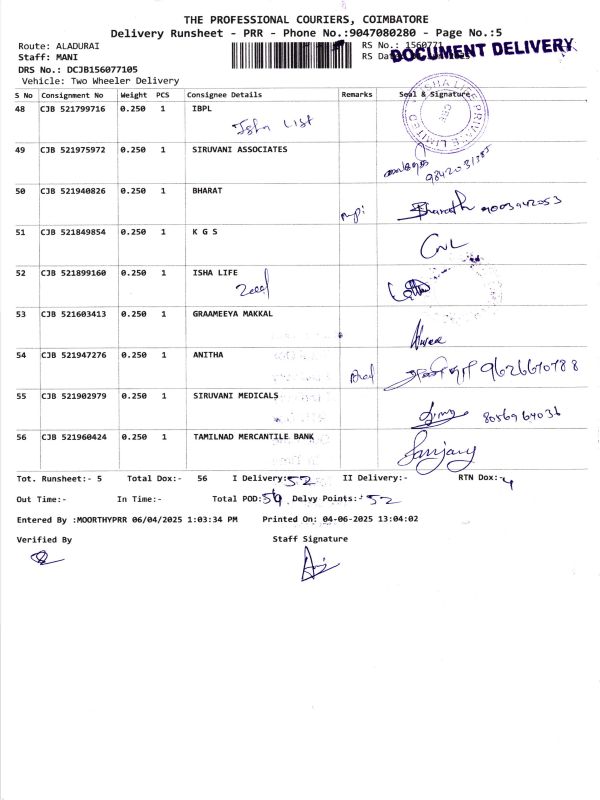 THE PROFESSIONAL COURIERS, COIMBATORE
Delivery Runsheet - PRR - Phone No.:9047080280 - Page No.:5
Route: ALADURAI RS No.: 1560771
Staff: MANI RS Da
DOCUMENT DELIVERY
DRS No.: DCJB156077105
Vehicle: Two Wheeler Delivery
S No Consignment No Weight PCS Consignee Details Remarks Seal & Signature
48 CJB 521799716 0.250 1 IBPL
PRIVATE LIMITED
49 CJB 521975972 0.250 1 SIRUVANI ASSOCIATES
50 CJB 521940826 0.250 1 BHARAT
Bharath 9003942053
51 CJB 521849854 0.250 1 K G S
52 CJB 521899160 0.250 1 ISHA LIFE
53 CJB 521603413 0.250 1 GRAAMEEYA MAKKAL
54 CJB 521947276 0.250 1 ANITHA
9626670788
55 CJB 521902979 0.250 1 SIRUVANI MEDICALS
8056964036
56 CJB 521960424 0.250 1 TAMILNAD MERCANTILE BANK
Sanjay
Tot. Runsheet:- 5 Total Dox:- 56 I Delivery:- 52 II Delivery:- RTN Dox:- 4
Out Time:- In Time:- Total POD: 56 Delvy Points:- 52
Entered By :MOORTHYPRR 06/04/2025 1:03:34 PM Printed On: 04-06-2025 13:04:02
Verified By Staff Signature